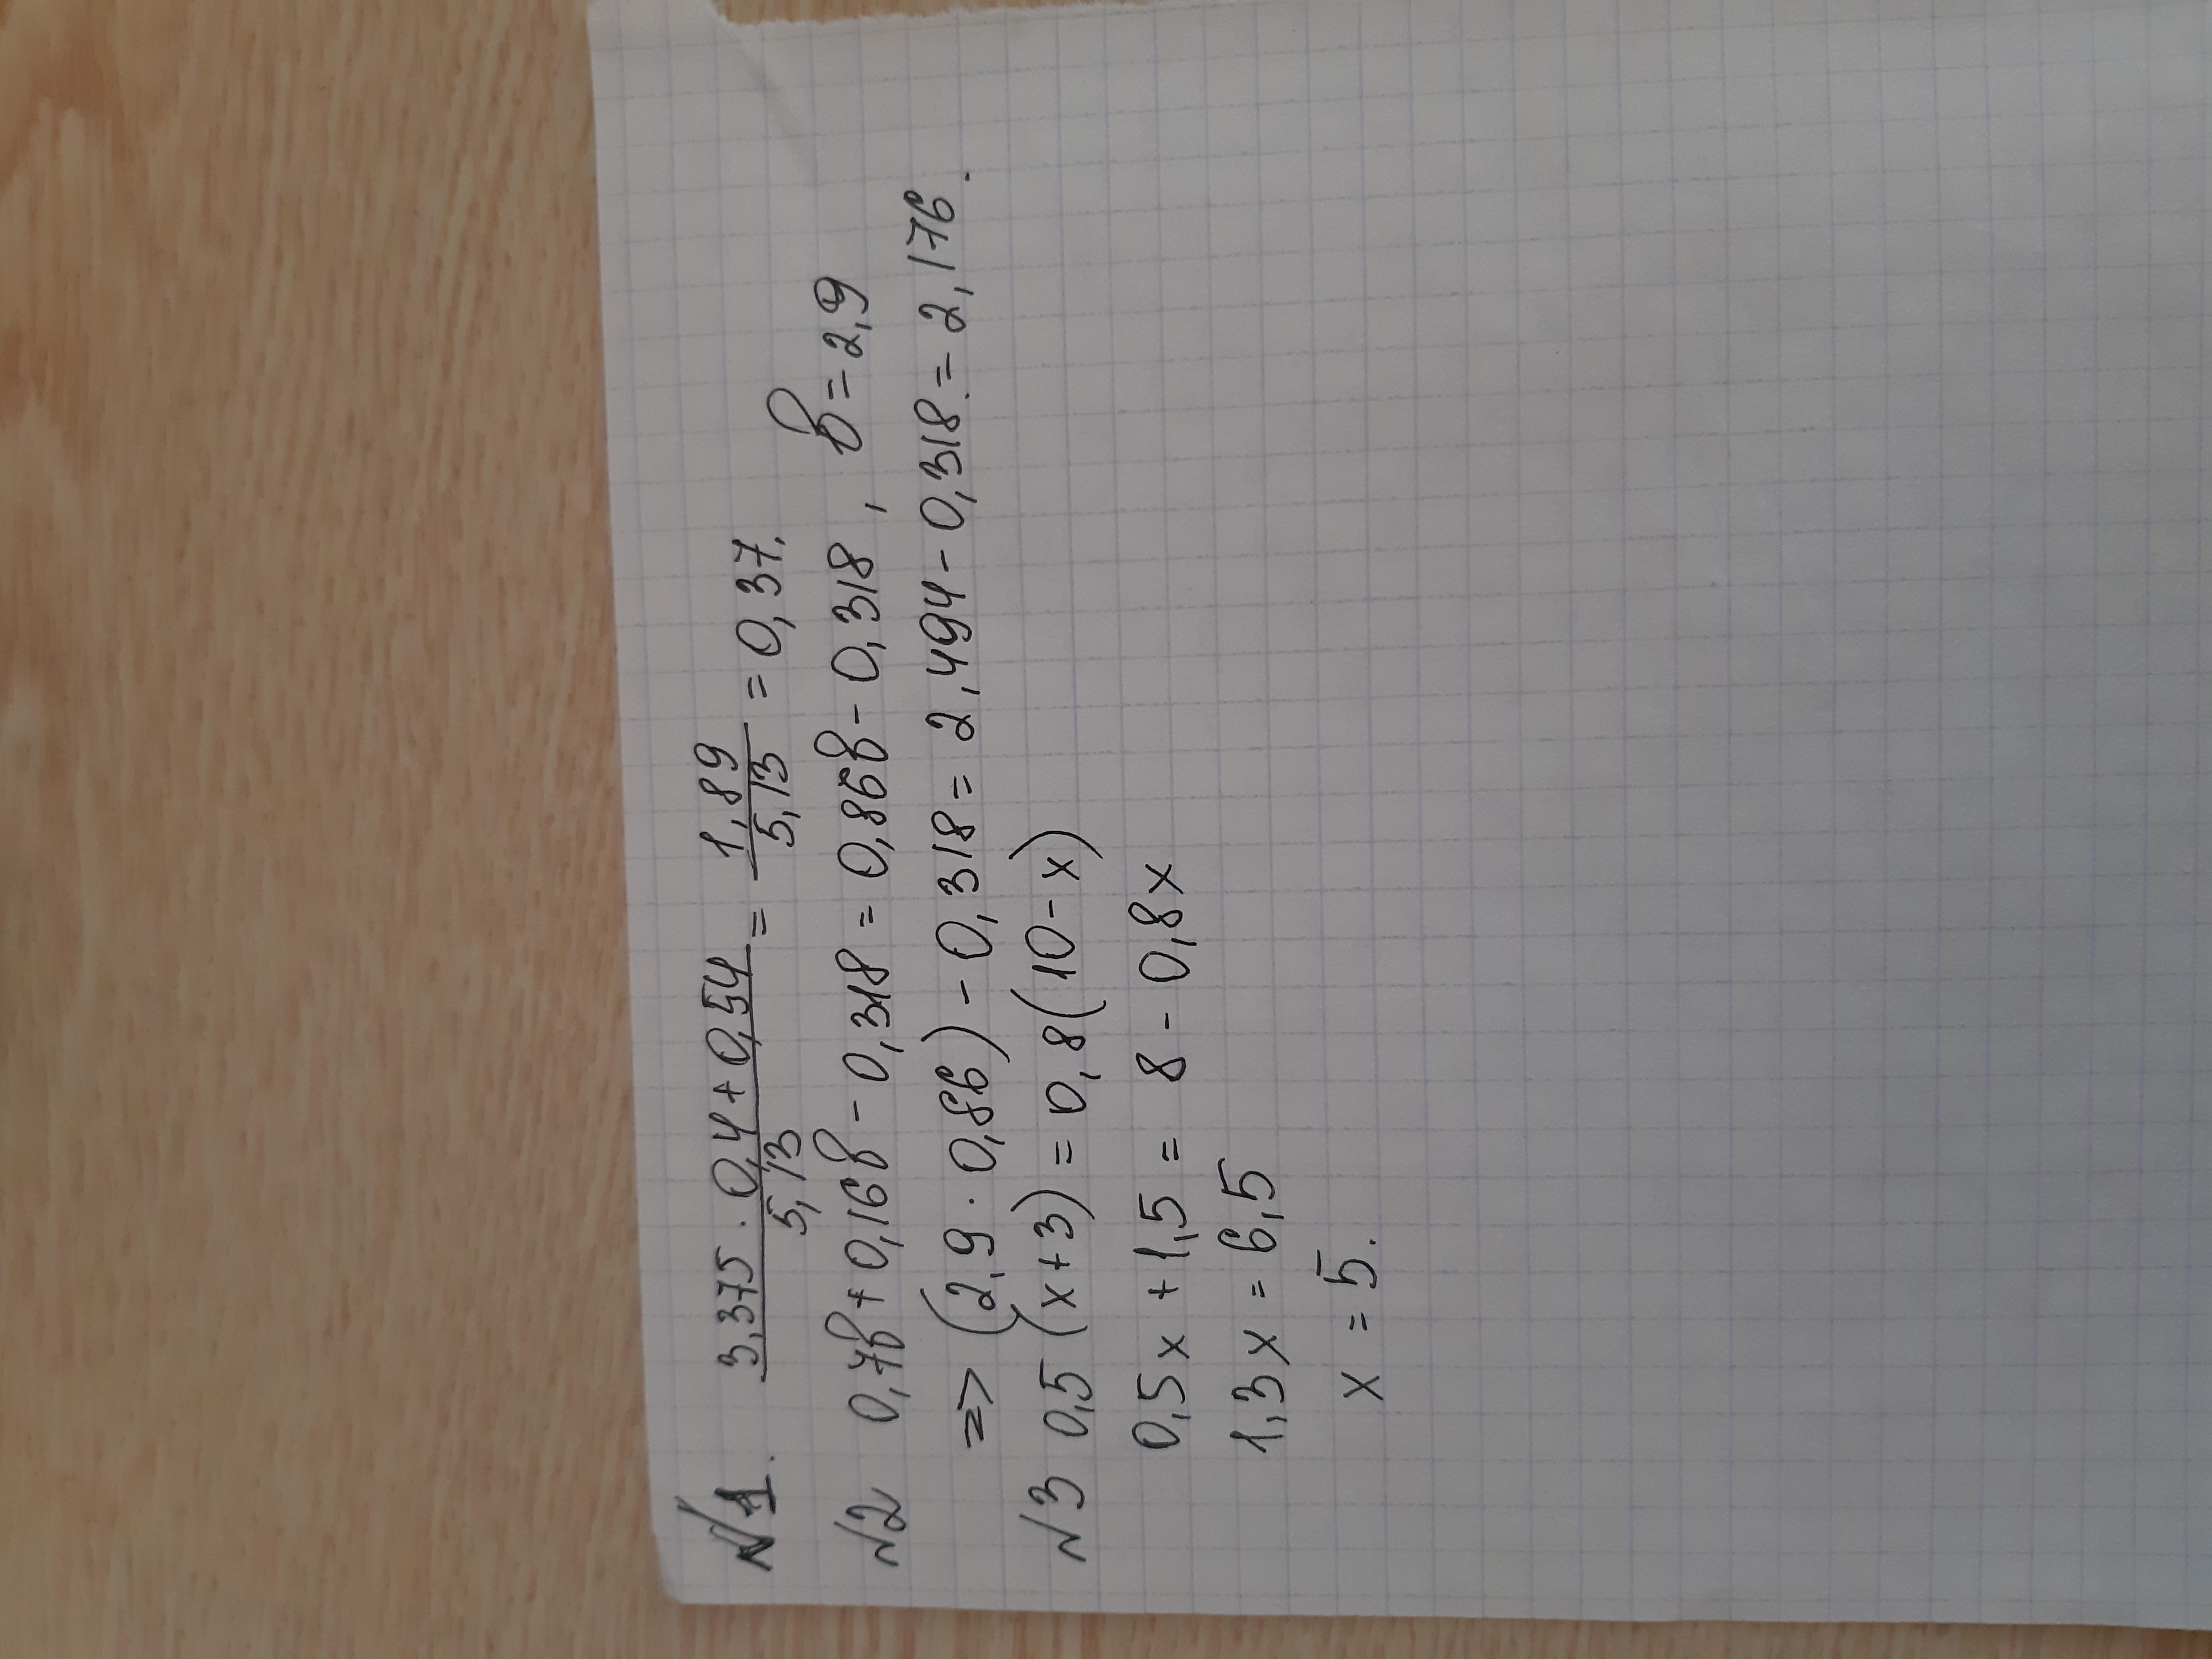 №1. 3,375 · 0,4 + 0,54 / 5,13 = 1,89 / 5,13 = 0,37.
№2 0,7в + 0,16в - 0,318 = 0,86в - 0,318 , в = 2,9
=> (2,9 · 0,86) - 0,318 = 2,494 - 0,318 = 2,176.
№3 0,5 (x + 3) = 0,8 (10 - x)
0,5x + 1,5 = 8 - 0,8x
1,3x = 6,5
x = 5.